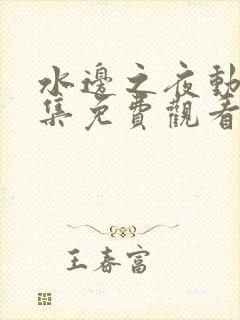 水邊之夜動
集免費觀看
王春富